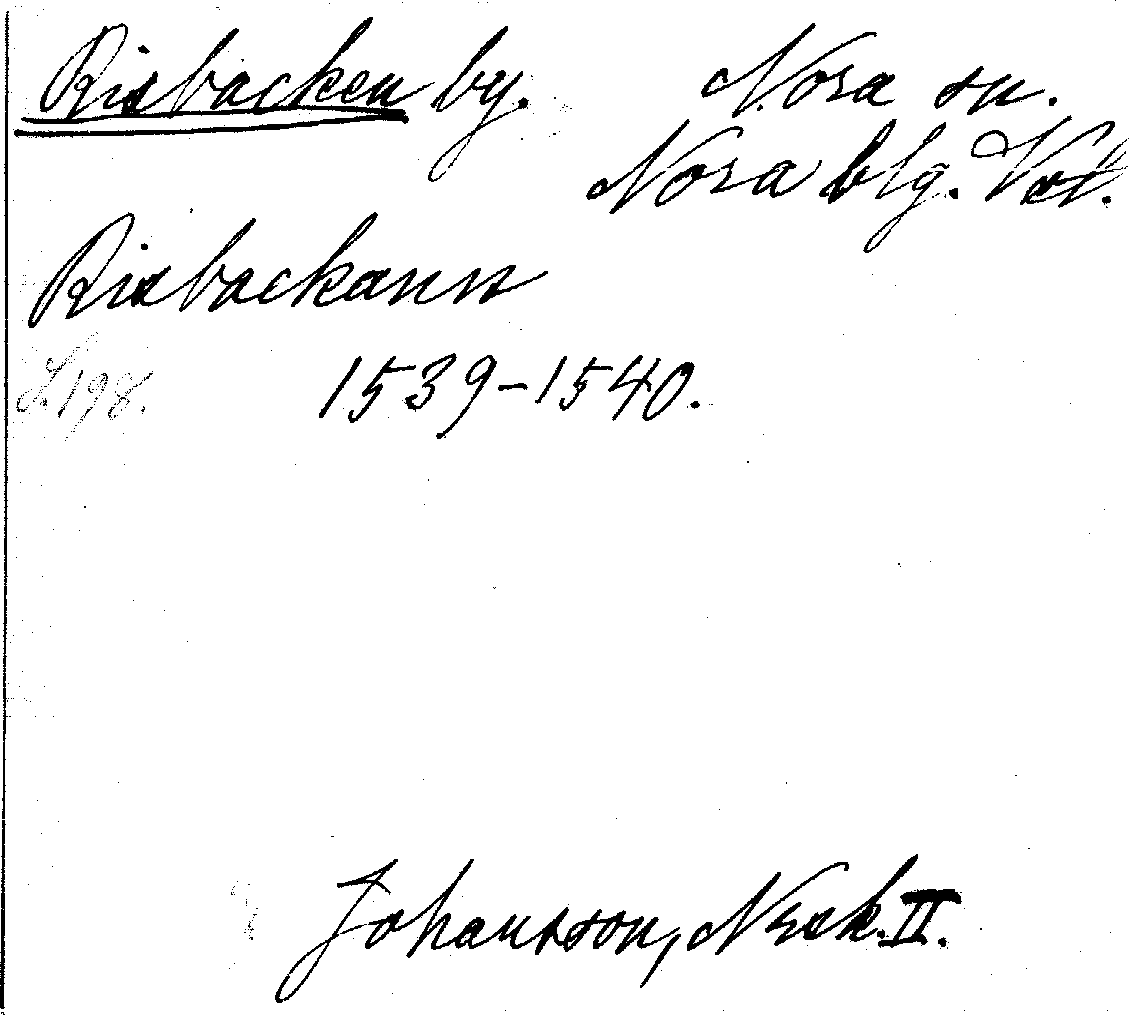 Risbacken by. Nora sn.
Nora blg. Vstl.
Risbackann
S. 198. 1539-1540.
Johansson, Nosk. II.